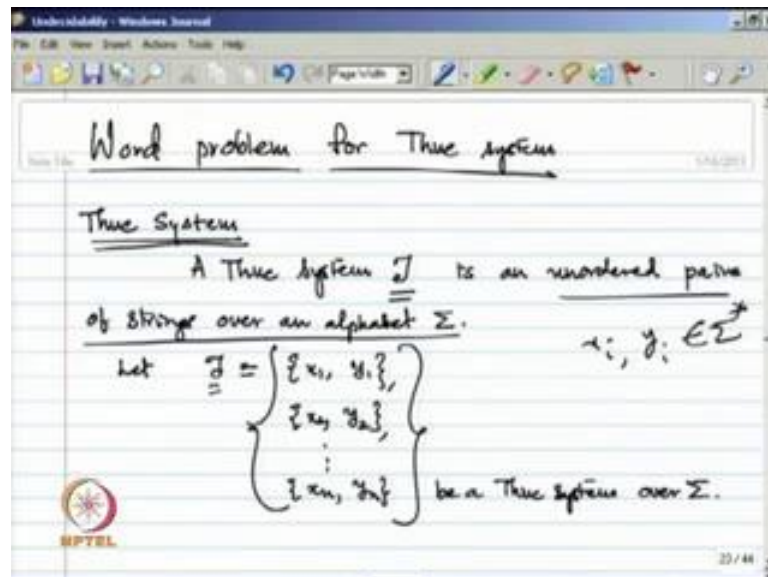 Undecidability - Windows Journal
File Edit View Insert Actions Tools Help
Page Width
Word problem for Thue system
Thue System
A Thue system J is an unordered pairs
of strings over an alphabet Σ.
xi, yi ∈ Σ*
Let J = { {x1, y1},
{x2, y2},
⋮
{xn, yn} } be a Thue system over Σ.
NPTEL
23/44